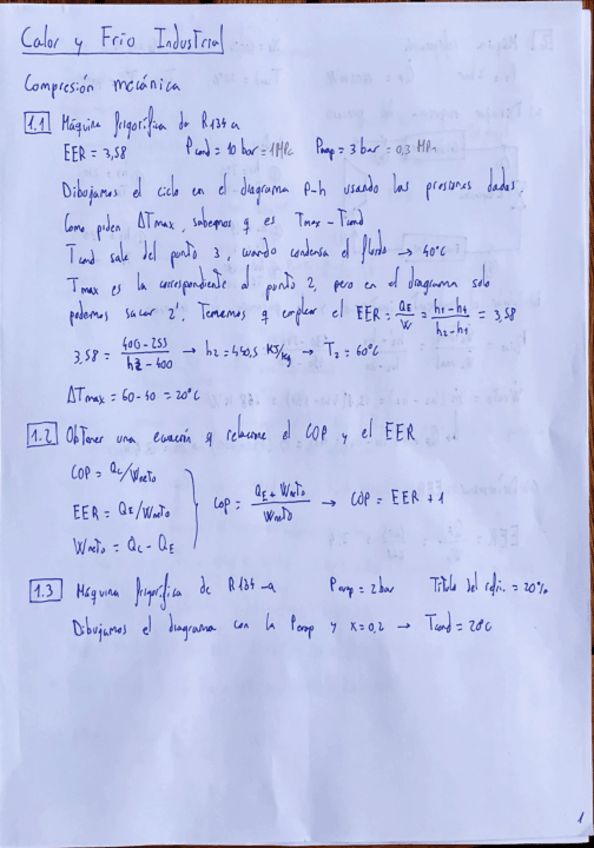 Calor y Frío Industrial
Compresión mecánica
1.1 Máquina frigorífica de R134a
EER = 3,58 Pcond = 10 bar = 1MPa Pevap = 3 bar = 0,3 MPa
Dibujamos el ciclo en el diagrama p-h usando las presiones dadas.
Como piden ΔTmax, sabemos q es Tmax - Tcond
Tcond sale del punto 3, cuando condensa el fluido → 40°C
Tmax es la correspondiente al punto 2, pero en el diagrama solo
podemos sacar 2'. Tenemos q emplear el EER = QE/W = h1-h4/h2-h1 = 3,58
3,58 = 400-255/h2-400 → h2 = 440,5 KJ/Kg → T2 = 60°C
ΔTmax = 60-40 = 20°C
1.2 Obtener una ecuación q relacione el COP y el EER
COP = QC/Wneto
EER = QE/Wneto
Wneto = QC - QE
COP = QE + Wneto/Wneto → COP = EER + 1
1.3 Máquina frigorífica de R134-a Pevap = 2 bar Título del refri. = 20%
Dibujamos el diagrama con la Pevap y x=0,2 → Tcond = 20°C
1